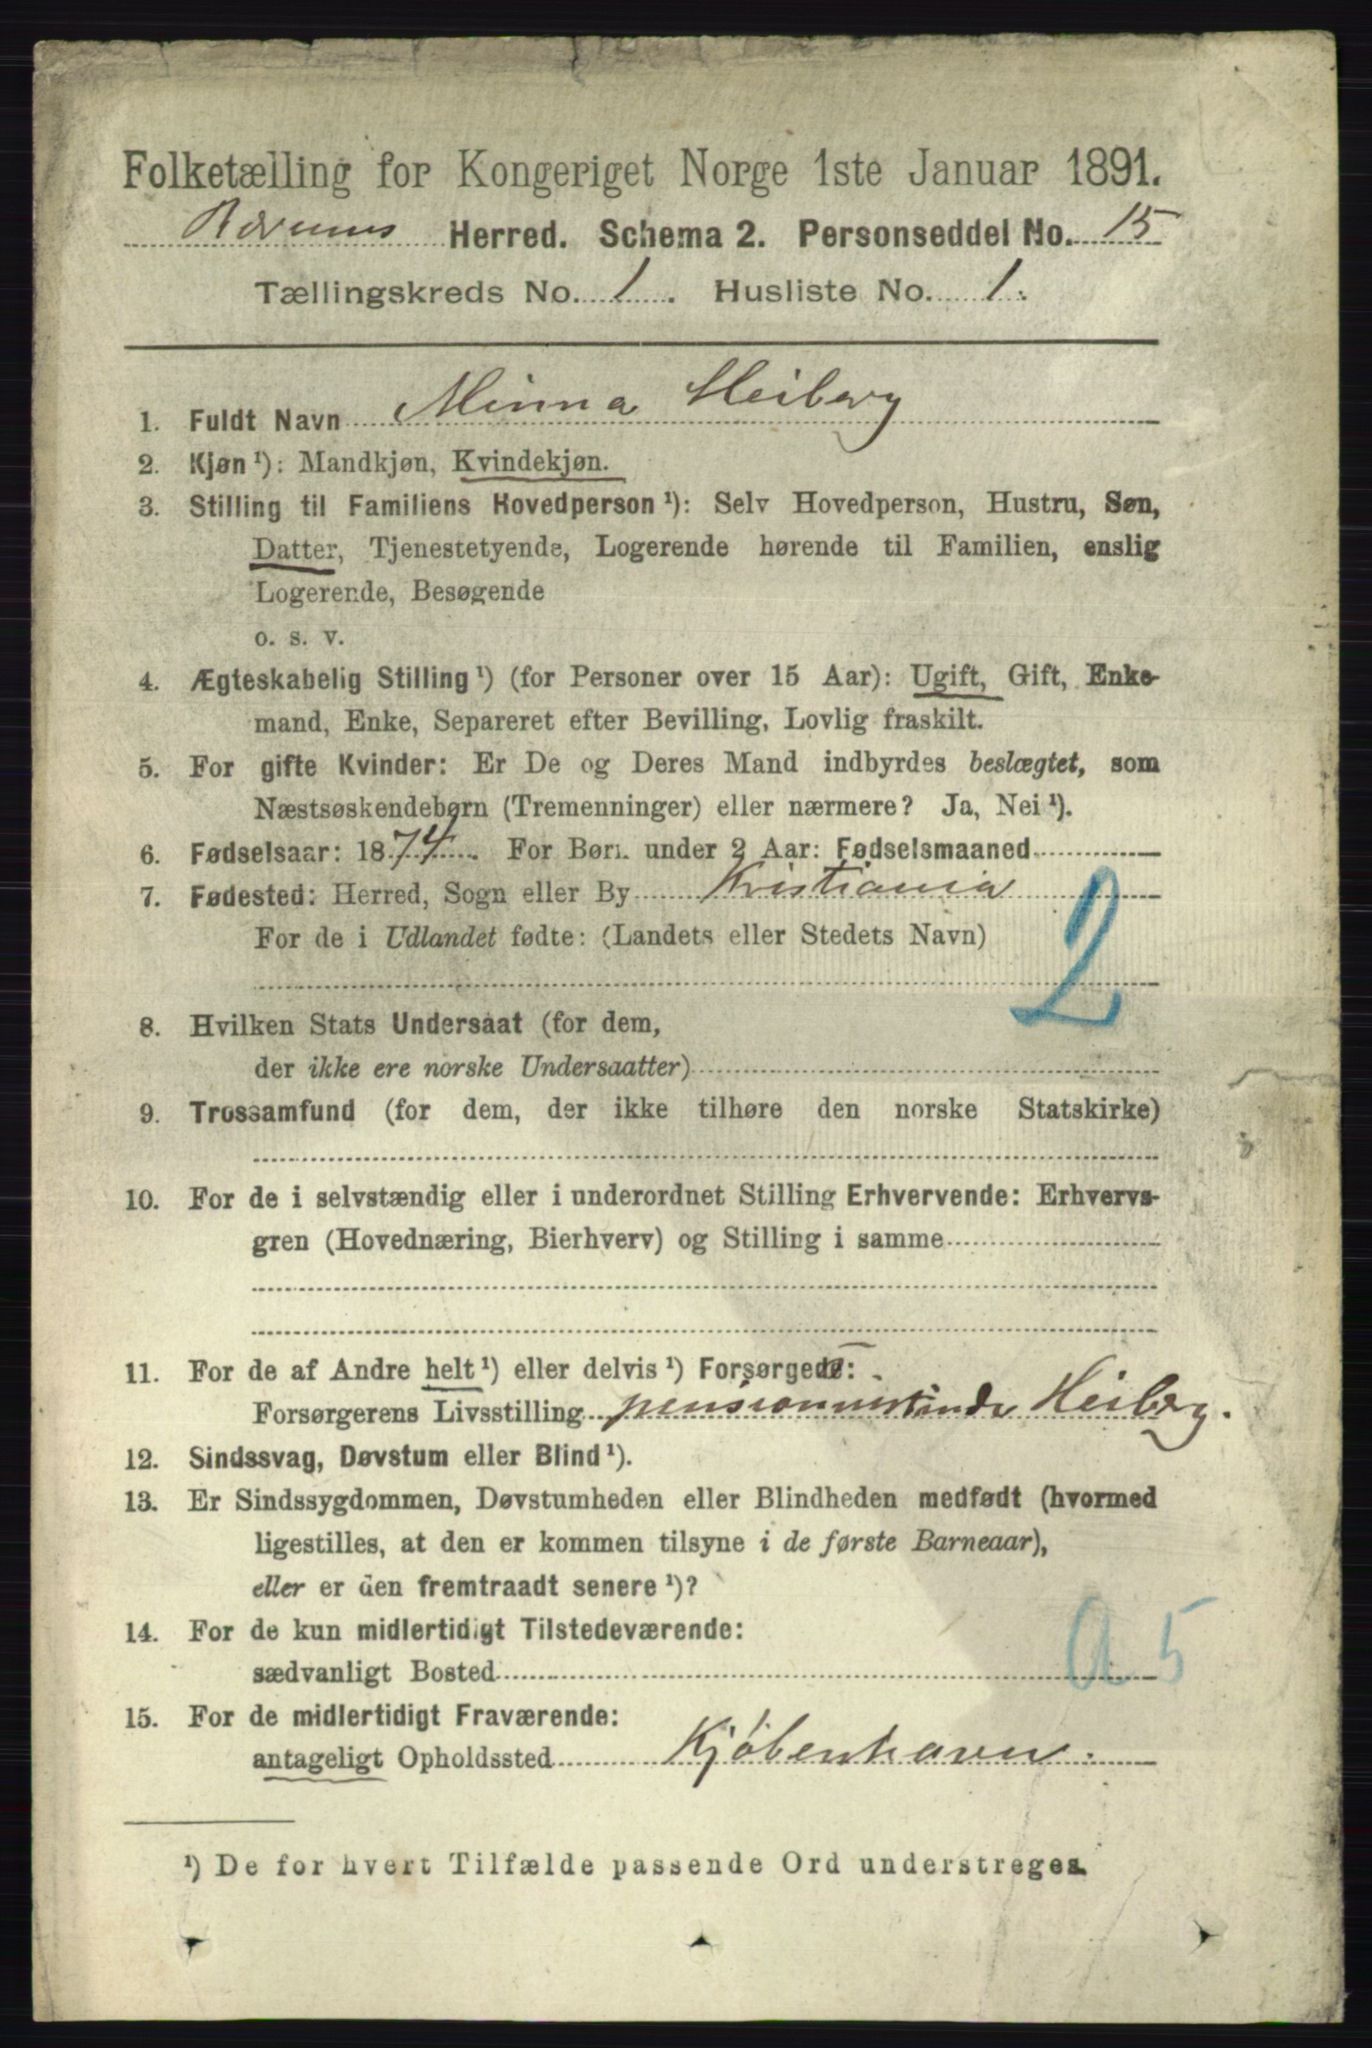 Folketælling for Kongeriget Norge 1ste Januar 1891.
Bærums Herred. Schema 2. Personseddel No. 15
Tællingskreds No. 1. Husliste No. 1.
1. Fuldt Navn Minna Heiberg
2. Kjøn ¹): Mandkjøn, Kvindekjøn.
3. Stilling til Familiens Hovedperson ¹): Selv Hovedperson, Hustru, Søn,
Datter, Tjenestetyende, Logerende hørende til Familien, enslig
Logerende, Besøgende
o. s. v.
4. Ægteskabelig Stilling ¹) (for Personer over 15 Aar): Ugift, Gift, Enke-
mand, Enke, Separeret efter Bevilling, Lovlig fraskilt.
5. For gifte Kvinder: Er De og Deres Mand indbyrdes beslægtet, som
Næstsøskendebørn (Tremenninger) eller nærmere? Ja, Nei ¹).
6. Fødselsaar: 1874. For Børn under 2 Aar: Fødselsmaaned
7. Fødested: Herred, Sogn eller By Kristiania
For de i Udlandet fødte: (Landets eller Stedets Navn)
2
8. Hvilken Stats Undersaat (for dem,
der ikke ere norske Undersaatter)
9. Trossamfund (for dem, der ikke tilhøre den norske Statskirke)
10. For de i selvstændig eller i underordnet Stilling Erhvervende: Erhvervs-
gren (Hovednæring, Bierhverv) og Stilling i samme
11. For de af Andre helt ¹) eller delvis ¹) Forsørgede:
Forsørgerens Livsstilling Heiberg.
12. Sindssvag, Døvstum eller Blind ¹).
13. Er Sindssygdommen, Døvstumheden eller Blindheden medfødt (hvormed
ligestilles, at den er kommen tilsyne i de første Barneaar),
eller er den fremtraadt senere ¹)?
14. For de kun midlertidigt Tilstedeværende:
sædvanligt Bosted a 5
15. For de midlertidigt Fraværende:
antageligt Opholdssted Kjöbenhavn.
¹) De for hvert Tilfælde passende Ord understreges.